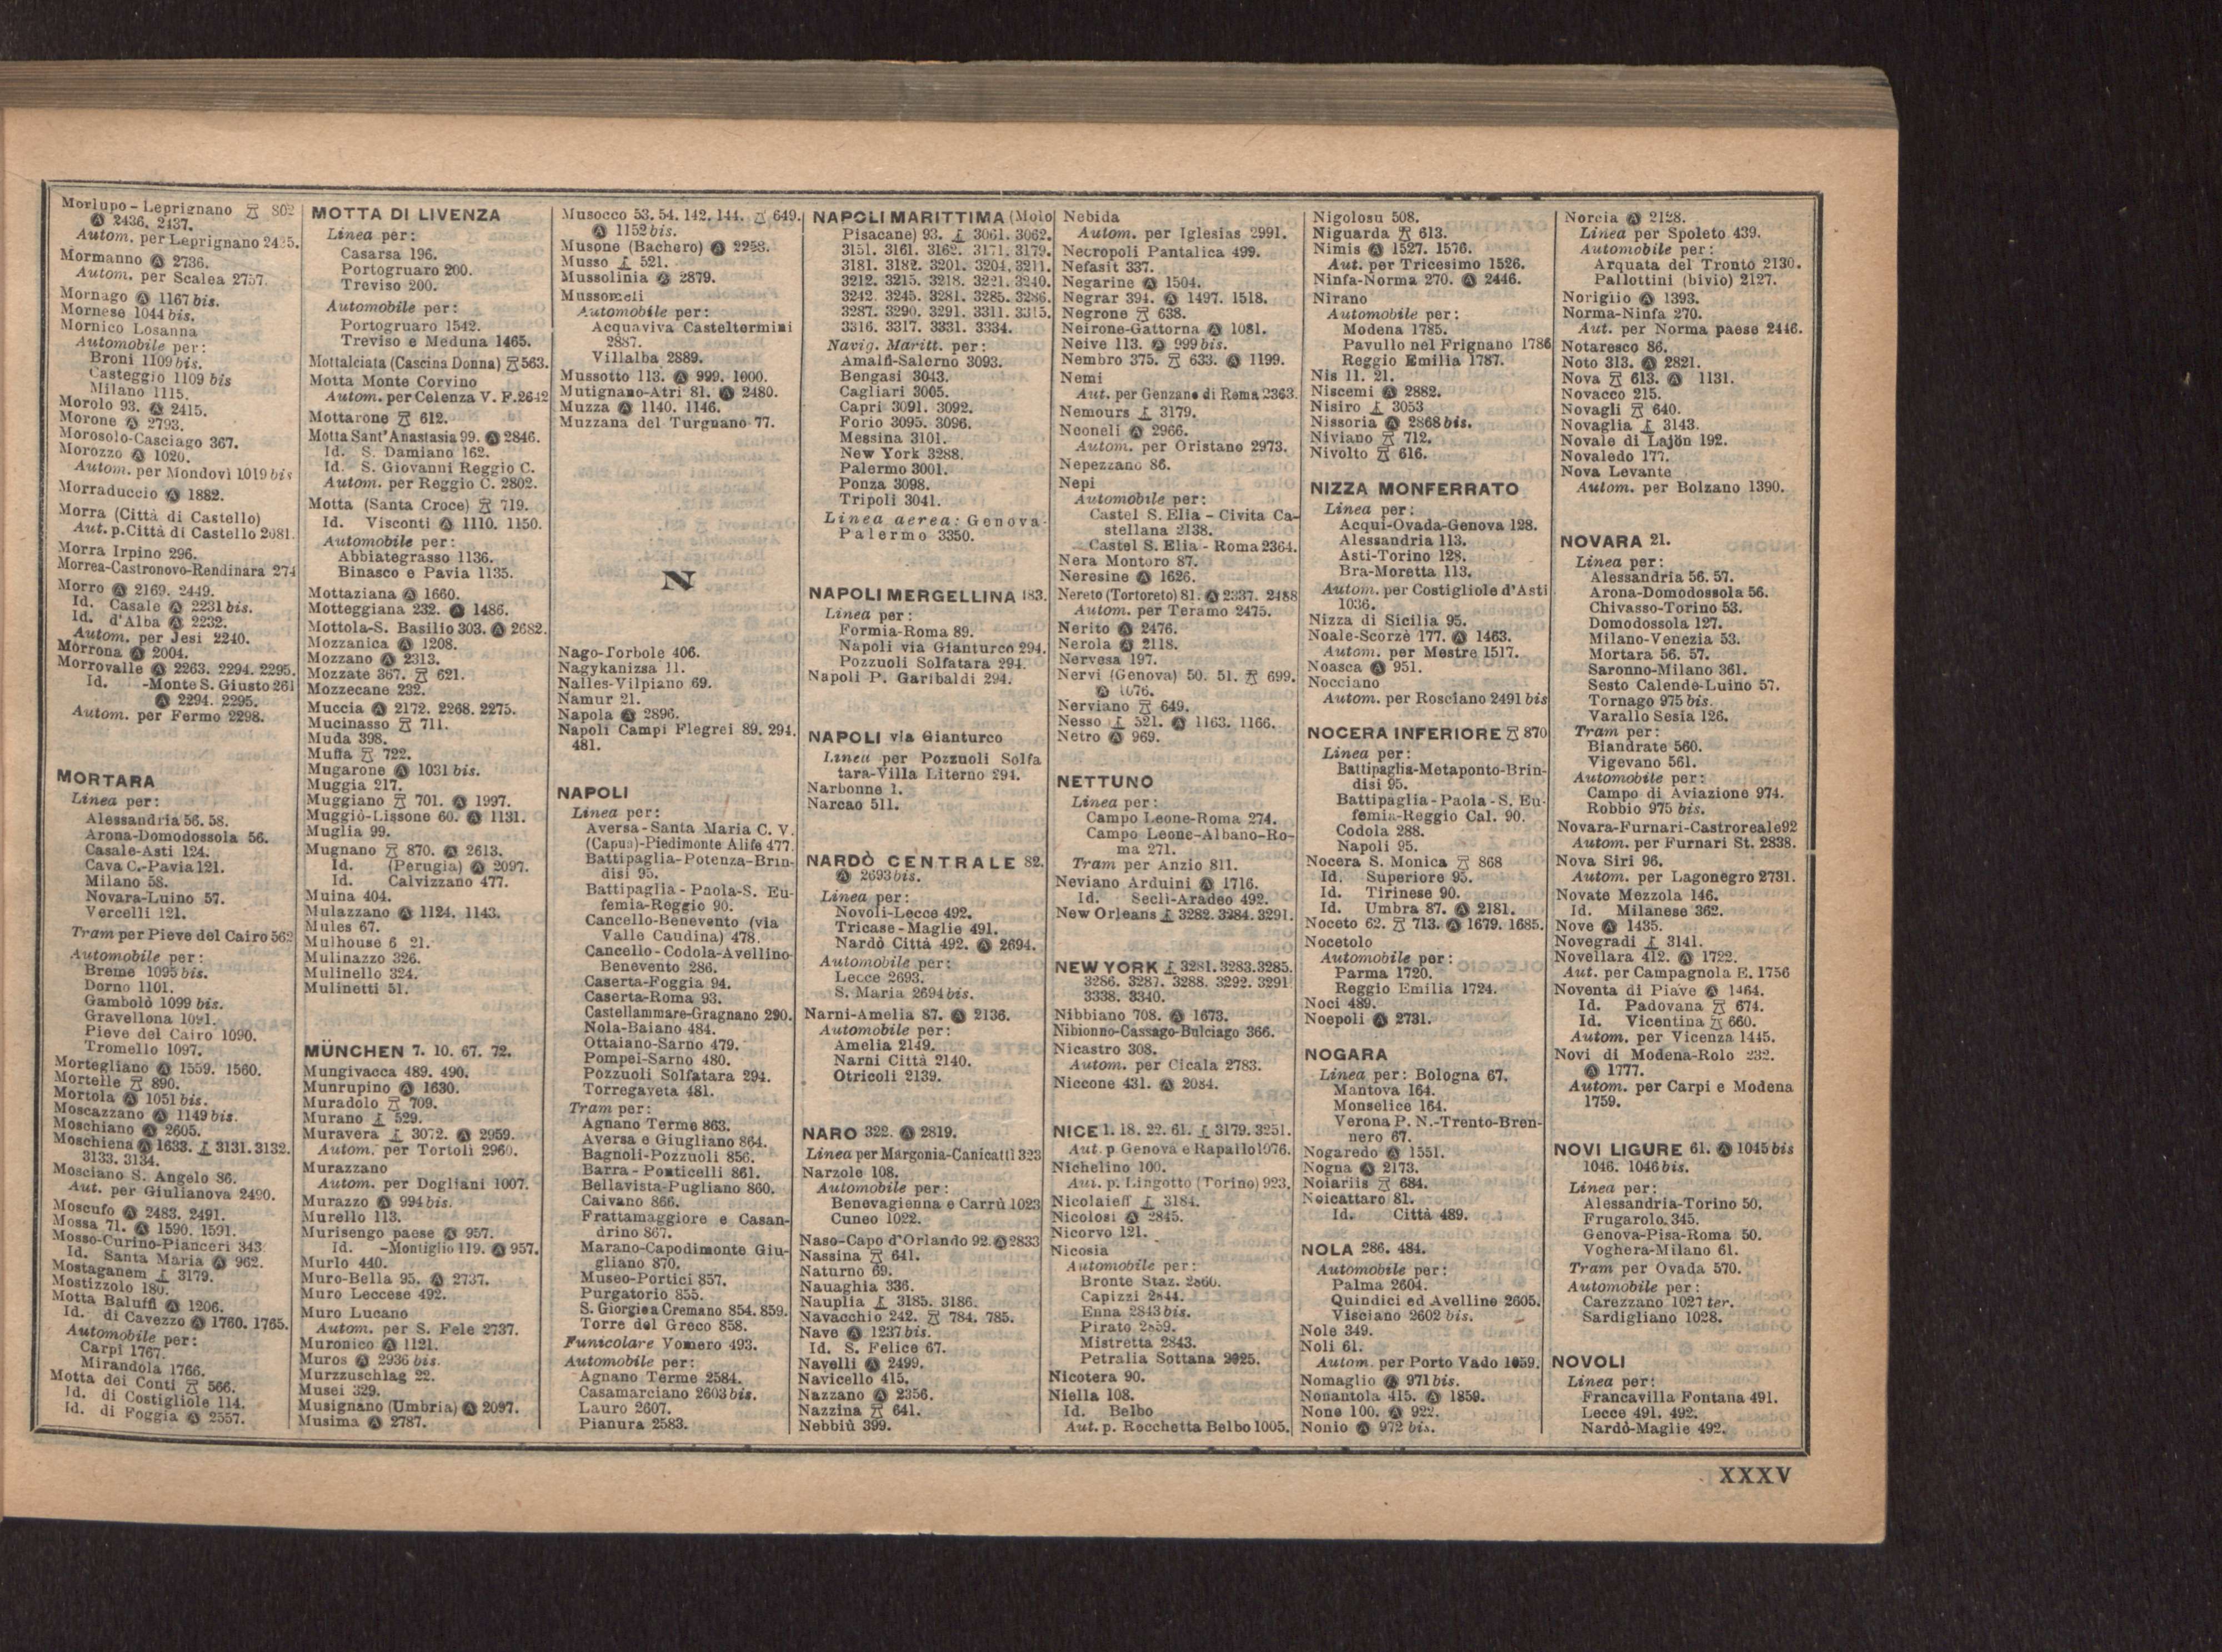 Morlupo-Leprignano 802
Ⓐ 2436. 2437.
Autom. per Leprignano 2435.
Mormanno Ⓐ 2736.
Autom. per Scalea 2757.
Mornago Ⓐ 1167 bis.
Mornese 1044 bis.
Mornico Losanna
Automobile per:
Broni 1109 bis.
Casteggio 1109 bis
Milano 1115.
Morolo 93. Ⓐ 2415.
Morone Ⓐ 2793.
Morosolo-Casciago 367.
Morozzo Ⓐ 1020.
Autom. per Mondovì 1019 bis
Morraduccio Ⓐ 1882.
Morra (Città di Castello)
Aut. p. Città di Castello 2081.
Morra Irpino 296.
Morrea-Castronovo-Rendinara 274
Morro Ⓐ 2169. 2449.
Id. Casale Ⓐ 2231 bis.
Id. d'Alba Ⓐ 2232.
Autom. per Jesi 2240.
Morrona Ⓐ 2004.
Morrovalle Ⓐ 2263. 2294. 2295.
Id. -Monte S. Giusto 261
Ⓐ 2294. 2295.
Autom. per Fermo 2298.
MORTARA
Linea per:
Alessandria 56. 58.
Arona-Domodossola 56.
Casale-Asti 124.
Cava C.-Pavia 121.
Milano 58.
Novara-Luino 57.
Vercelli 121.
Tram per Pieve del Cairo 562
Automobile per:
Breme 1095 bis.
Dorno 1101.
Gambolò 1099 bis.
Gravellona 1091.
Pieve del Cairo 1090.
Tromello 1097.
Mortegliano Ⓐ 1559. 1560.
Mortelle 890.
Mortola Ⓐ 1051 bis.
Moscazzano Ⓐ 1149 bis.
Moschiano Ⓐ 2605.
Moschiena Ⓐ 1633. 3131. 3132.
3133. 3134.
Mosciano S. Angelo 86.
Aut. per Giulianova 2490.
Moscufo Ⓐ 2483. 2491.
Mossa 71. Ⓐ 1590. 1591.
Mosso-Curino-Pianceri 343
Id. Santa Maria Ⓐ 962.
Mostaganem 3179.
Mostizzolo 180.
Motta Baluffi Ⓐ 1206.
Id. di Cavezzo Ⓐ 1760. 1765.
Automobile per:
Carpi 1767.
Mirandola 1766.
Motta dei Conti 566.
Id. di Costigliole 114.
Id. di Foggia Ⓐ 2557.
MOTTA DI LIVENZA
Linea per:
Casarsa 196.
Portogruaro 200.
Treviso 200.
Automobile per:
Portogruaro 1542.
Treviso e Meduna 1465.
Mottalciata (Cascina Donna) 563.
Motta Monte Corvino
Autom. per Celenza V. F. 2642
Mottarone 612.
Motta Sant'Anastasia 99. Ⓐ 2846.
Id. S. Damiano 162.
Id. S. Giovanni Reggio C.
Autom. per Reggio C. 2802.
Motta (Santa Croce) 719.
Id. Visconti Ⓐ 1110. 1150.
Automobile per:
Abbiategrasso 1136.
Binasco e Pavia 1135.
Mottaziana Ⓐ 1660.
Motteggiana 232. Ⓐ 1486.
Mottola-S. Basilio 303. Ⓐ 2682.
Mozzanica Ⓐ 1208.
Mozzano Ⓐ 2313.
Mozzate 367. 621.
Mozzecane 232.
Muccia Ⓐ 2172. 2268. 2275.
Mucinasso 711.
Muda 398.
Muffa 722.
Mugarone Ⓐ 1031 bis.
Muggia 217.
Muggiano 701. Ⓐ 1997.
Muggiò-Lissone 60. Ⓐ 1131.
Muglia 99.
Mugnano 870. Ⓐ 2613.
Id. (Perugia) Ⓐ 2097.
Id. Calvizzano 477.
Muina 404.
Mulazzano Ⓐ 1124. 1143.
Mules 67.
Mulhouse 6 21.
Mulinazzo 326.
Mulinello 324.
Mulinetti 51.
MÜNCHEN 7. 10. 67. 72.
Mungivacca 489. 490.
Munrupino Ⓐ 1630.
Muradolo 709.
Murano 529.
Muravera 3072. Ⓐ 2959.
Autom. per Tortolì 2960.
Murazzano
Autom. per Dogliani 1007.
Murazzo Ⓐ 994 bis.
Murello 113.
Murisengo paese Ⓐ 957.
Id. -Montiglio 119. Ⓐ 957.
Murlo 440.
Muro-Bella 95. Ⓐ 2737.
Muro Leccese 492.
Muro Lucano
Autom. per S. Fele 2737.
Muronico Ⓐ 1121.
Muros Ⓐ 2936 bis.
Murzzuschlag 22.
Musei 329.
Musignano (Umbria) Ⓐ 2097.
Musima Ⓐ 2787.
Musocco 53. 54. 142. 144. 649.
Ⓐ 1152 bis.
Musone (Bachero) Ⓐ 2258.
Musso 521.
Mussolinia Ⓐ 2879.
Mussomeli
Automobile per:
Acquaviva Casteltermini
2887.
Villalba 2889.
Mussotto 113. Ⓐ 999. 1000.
Mutignano-Atri 81. Ⓐ 2480.
Muzza Ⓐ 1140. 1146.
Muzzana del Turgnano 77.
N
Nago-Torbole 406.
Nagykanizsa 11.
Nalles-Vilpiano 69.
Namur 21.
Napola Ⓐ 2896.
Napoli Campi Flegrei 89. 294.
481.
NAPOLI
Linea per:
Aversa-Santa Maria C. V.
(Capua)-Piedimonte Alife 477.
Battipaglia-Potenza-Brin-
disi 95.
Battipaglia-Paola-S. Eu-
femia-Reggio 90.
Cancello-Benevento (via
Valle Caudina) 478.
Cancello-Codola-Avellino-
Benevento 286.
Caserta-Foggia 94.
Caserta-Roma 93.
Castellammare-Gragnano 290.
Nola-Baiano 484.
Ottaiano-Sarno 479.
Pompei-Sarno 480.
Pozzuoli Solfatara 294.
Torregaveta 481.
Tram per:
Agnano Terme 863.
Aversa e Giugliano 864.
Bagnoli-Pozzuoli 856.
Barra-Ponticelli 861.
Bellavista-Pugliano 860.
Caivano 866.
Frattamaggiore e Casan-
drino 867.
Marano-Capodimonte Giu-
gliano 870.
Museo-Portici 857.
Purgatorio 855.
S. Giorgio a Cremano 854. 859.
Torre del Greco 858.
Funicolare Vomero 493.
Automobile per:
Agnano Terme 2584.
Casamarciano 2603 bis.
Lauro 2607.
Pianura 2583.
NAPOLI MARITTIMA (Molo
Pisacane) 93. 3061. 3062.
3151. 3161. 3162. 3171. 3179.
3181. 3182. 3201. 3204. 3211.
3212. 3215. 3218. 3221. 3240.
3242. 3245. 3281. 3285. 3286.
3287. 3290. 3291. 3311. 3315.
3316. 3317. 3331. 3334.
Navig. Maritt. per:
Amalfi-Salerno 3093.
Bengasi 3043.
Cagliari 3005.
Capri 3091. 3092.
Forio 3095. 3096.
Messina 3101.
New York 3288.
Palermo 3001.
Ponza 3098.
Tripoli 3041.
Linea aerea: Genova-
Palermo 3350.
NAPOLI MERGELLINA 183.
Linea per:
Formia-Roma 89.
Napoli via Gianturco 294.
Pozzuoli Solfatara 294.
Napoli P. Garibaldi 294.
NAPOLI via Gianturco
Linea per Pozzuoli Solfa
tara-Villa Literno 294.
Narbonne 1.
Narcao 511.
NARDÒ CENTRALE 82.
Ⓐ 2693 bis.
Linea per:
Novoli-Lecce 492.
Tricase-Maglie 491.
Nardò Città 492. Ⓐ 2694.
Automobile per:
Lecce 2693.
S. Maria 2694 bis.
Narni-Amelia 87. Ⓐ 2136.
Automobile per:
Amelia 2149.
Narni Città 2140.
Otricoli 2139.
NARO 322. Ⓐ 2819.
Linea per Margonia-Canicattì 323
Narzole 108.
Automobile per:
Benevagienna e Carrù 1023
Cuneo 1022.
Naso-Capo d'Orlando 92. Ⓐ 2833
Nassina 641.
Naturno 69.
Nauaghia 336.
Nauplia 3185. 3186.
Navacchio 242. 784. 785.
Nave Ⓐ 1237 bis.
Id. S. Felice 67.
Navelli Ⓐ 2499.
Navicello 415.
Nazzano Ⓐ 2356.
Nazzina 641.
Nebbiù 399.
Nebida
Autom. per Iglesias 2991.
Necropoli Pantalica 499.
Nefasit 337.
Negarine Ⓐ 1504.
Negrar 394. Ⓐ 1497. 1518.
Negrone 638.
Neirone-Gattorna Ⓐ 1081.
Neive 113. Ⓐ 999 bis.
Nembro 375. 633. Ⓐ 1199.
Nemi
Aut. per Genzano di Roma 2363.
Nemours 3179.
Neoneli Ⓐ 2966.
Autom. per Oristano 2973.
Nepezzano 86.
Nepi
Automobile per:
Castel S. Elia-Civita Ca-
stellana 2138.
Castel S. Elia-Roma 2364.
Nera Montoro 87.
Neresine Ⓐ 1626.
Nereto (Tortoreto) 81. Ⓐ 2337. 2488
Autom. per Teramo 2475.
Nerito Ⓐ 2476.
Nerola Ⓐ 2118.
Nervesa 197.
Nervi (Genova) 50. 51. 699.
Ⓐ 1076.
Nerviano 649.
Nesso 521. Ⓐ 1163. 1166.
Netro Ⓐ 969.
NETTUNO
Linea per:
Campo Leone-Roma 274.
Campo Leone-Albano-Ro-
ma 271.
Tram per Anzio 811.
Neviano Arduini Ⓐ 1716.
Id. Seclì-Aradeo 492.
New Orleans 3282. 3284. 3291.
NEW YORK 3281. 3283. 3285.
3286. 3287. 3288. 3292. 3291
3338. 3340.
Nibbiano 708. Ⓐ 1673.
Nibionno-Cassago-Bulciago 366.
Nicastro 308.
Autom. per Cicala 2783.
Niccone 431. Ⓐ 2084.
NICE 1. 18. 22. 61. 3179. 3251.
Aut. p Genova e Rapallo 1076.
Nichelino 100.
Aut. p. Lingotto (Torino) 923.
Nicolaieff 3184.
Nicolosi Ⓐ 2845.
Nicorvo 121.
Nicosia
Automobile per:
Bronte Staz. 2860.
Capizzi 2844.
Enna 2843 bis.
Pirato 2859.
Mistretta 2843.
Petralia Sottana 2925.
Nicotera 90.
Niella 108.
Id. Belbo
Aut. p. Rocchetta Belbo 1005.
Nigolosu 508.
Niguarda 613.
Nimis Ⓐ 1527. 1576.
Aut. per Tricesimo 1526.
Ninfa-Norma 270. Ⓐ 2446.
Nirano
Automobile per:
Modena 1785.
Pavullo nel Frignano 1786
Reggio Emilia 1787.
Nis 11. 21.
Niscemi Ⓐ 2882.
Nisiro 3053
Nissoria Ⓐ 2868 bis.
Niviano 712.
Nivolto 616.
NIZZA MONFERRATO
Linea per:
Acqui-Ovada-Genova 128.
Alessandria 113.
Asti-Torino 128.
Bra-Moretta 113.
Autom. per Costigliole d'Asti
1036.
Nizza di Sicilia 95.
Noale-Scorzè 177. Ⓐ 1463.
Autom. per Mestre 1517.
Noasca Ⓐ 951.
Nocciano
Autom. per Rosciano 2491 bis
NOCERA INFERIORE 870
Linea per:
Battipaglia-Metaponto-Brin-
disi 95.
Battipaglia-Paola-S. Eu-
femia-Reggio Cal. 90.
Codola 288.
Napoli 95.
Nocera S. Monica 868
Id. Superiore 95.
Id. Tirinese 90.
Id. Umbra 87. Ⓐ 2181.
Noceto 62. 713. Ⓐ 1679. 1685.
Nocetolo
Automobile per:
Parma 1720.
Reggio Emilia 1724.
Noci 489.
Noepoli Ⓐ 2731.
NOGARA
Linea per: Bologna 67.
Mantova 164.
Monselice 164.
Verona P. N.-Trento-Bren-
nero 67.
Nogaredo Ⓐ 1551.
Nogna Ⓐ 2173.
Noiariis 684.
Noicattaro 81.
Id. Città 489.
NOLA 286. 484.
Automobile per:
Palma 2604.
Quindici ed Avellino 2605.
Visciano 2602 bis.
Nole 349.
Noli 61.
Autom. per Porto Vado 1059.
Nomaglio Ⓐ 971 bis.
Nonantola 415. Ⓐ 1859.
None 100. Ⓐ 922.
Nonio Ⓐ 972 bis.
Norcia Ⓐ 2128.
Linea per Spoleto 439.
Automobile per:
Arquata del Tronto 2130.
Pallottini (bivio) 2127.
Noriglio Ⓐ 1393.
Norma-Ninfa 270.
Aut. per Norma paese 2446.
Notaresco 86.
Noto 313. Ⓐ 2821.
Nova 613. Ⓐ 1131.
Novacco 215.
Novagli 640.
Novaglia 3143.
Novale di Lajön 192.
Novaledo 177.
Nova Levante
Autom. per Bolzano 1390.
NOVARA 21.
Linea per:
Alessandria 56. 57.
Arona-Domodossola 56.
Chivasso-Torino 53.
Domodossola 127.
Milano-Venezia 53.
Mortara 56. 57.
Saronno-Milano 361.
Sesto Calende-Luino 57.
Tornago 975 bis.
Varallo Sesia 126.
Tram per:
Biandrate 560.
Vigevano 561.
Automobile per:
Campo di Aviazione 974.
Robbio 975 bis.
Novara-Furnari-Castroreale 92
Autom. per Furnari St. 2838.
Nova Siri 96.
Autom. per Lagonegro 2731.
Novate Mezzola 146.
Id. Milanese 362.
Nove Ⓐ 1435.
Novegradi 3141.
Novellara 412. Ⓐ 1722.
Aut. per Campagnola E. 1756
Noventa di Piave Ⓐ 1464.
Id. Padovana 674.
Id. Vicentina 660.
Autom. per Vicenza 1445.
Novi di Modena-Rolo 232.
Ⓐ 1777.
Autom. per Carpi e Modena
1759.
NOVI LIGURE 61. Ⓐ 1045 bis
1046. 1046 bis.
Linea per:
Alessandria-Torino 50.
Frugarolo. 345.
Genova-Pisa-Roma 50.
Voghera-Milano 61.
Tram per Ovada 570.
Automobile per:
Carezzano 1027 ter.
Sardigliano 1028.
NOVOLI
Linea per:
Francavilla Fontana 491.
Lecce 491. 492.
Nardò-Maglie 492.
XXXV